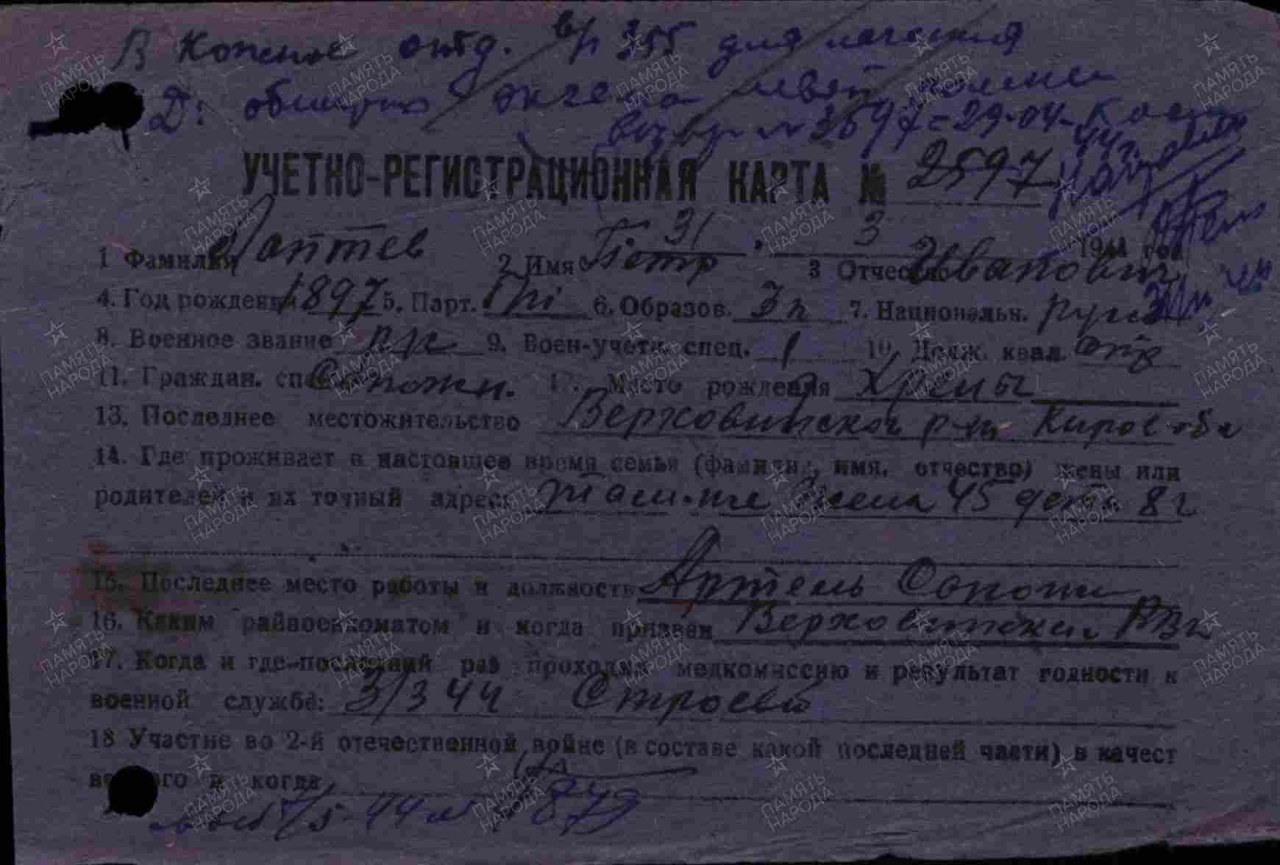 В кожное отд. в/р 355 для лечения
Д: обширная экзема левой голени
№ 2597 = 29-04-
УЧЕТНО-РЕГИСТРАЦИОННАЯ КАРТА № 2597
31 3 1944 год
1 Фамилия Лаптев 2. Имя Петр 3 Отчество Иванович
4. Год рождения 1897 5. Парт. б/п 6. Образов. 3 к 7. Национальн. рус
8. Военное звание кр 9. Воен-учетн. спец. 1 10. Долж. квал. стр
11. Граждан. спец. Сапожн. 12. Место рождения
13. Последнее местожительство Верховинской р-н Киров обл
14. Где проживает в настоящее время семья (фамилия, имя, отчество) жены или
родителей и их точный адрес: Там-же жена 45 дети 8 г
15. Последнее место работы и должность Артель Сапожн
16. Каким райвоенкоматом и когда призван Верховинским РВК
17. Когда и где последний раз проходил медкомиссию и результат годности к
военной службе: 3/3 44 Строевой
18 Участие во 2-й отечественной войне (в составе какой последней части) в качест
ве кого и когда
5-44
ПАМЯТЬ НАРОДА